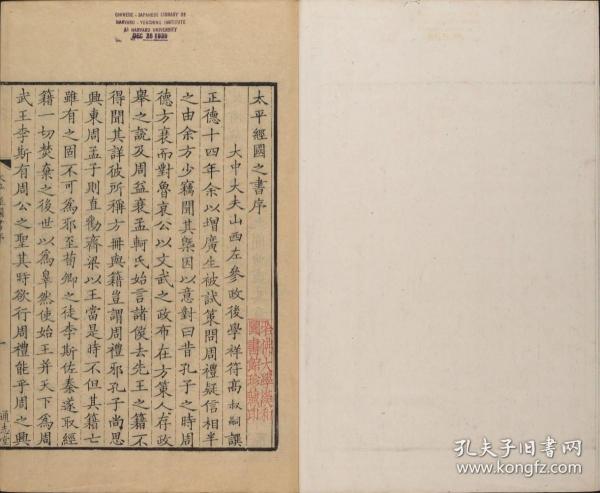 CHINESE - JAPANESE LIBRARY OF
HARVARD - YENCHING INSTITUTE
AT HARVARD UNIVERSITY
DEC 28 1936
太平經國之書序
大中大夫山西左參政後學祥符高叔嗣譔
正德十四年余以增廣生被試策問周禮疑信相半
之由余方少竊聞其槩因以意對曰昔孔子之時周
德方衰而對魯哀公以文武之政布在方策人存政
舉之說及周益衰孟軻氏始言諸侯去先王之籍不
得聞其詳彼所稱方冊與籍豈謂周禮邪孔子尚思
興東周孟子則直勸齊梁以王當是時不但其籍亡
雖有之固不可為邪至荀卿之徒李斯佐秦遂取經
籍一切焚棄之後世以為辠然使始王并天下為周
武王李斯有周公之聖其時欲行周禮能乎周之興
太平經國書序
一
通志堂
哈佛大學漢和
圖書館珍藏印
孔夫子旧书网
www.kongfz.com